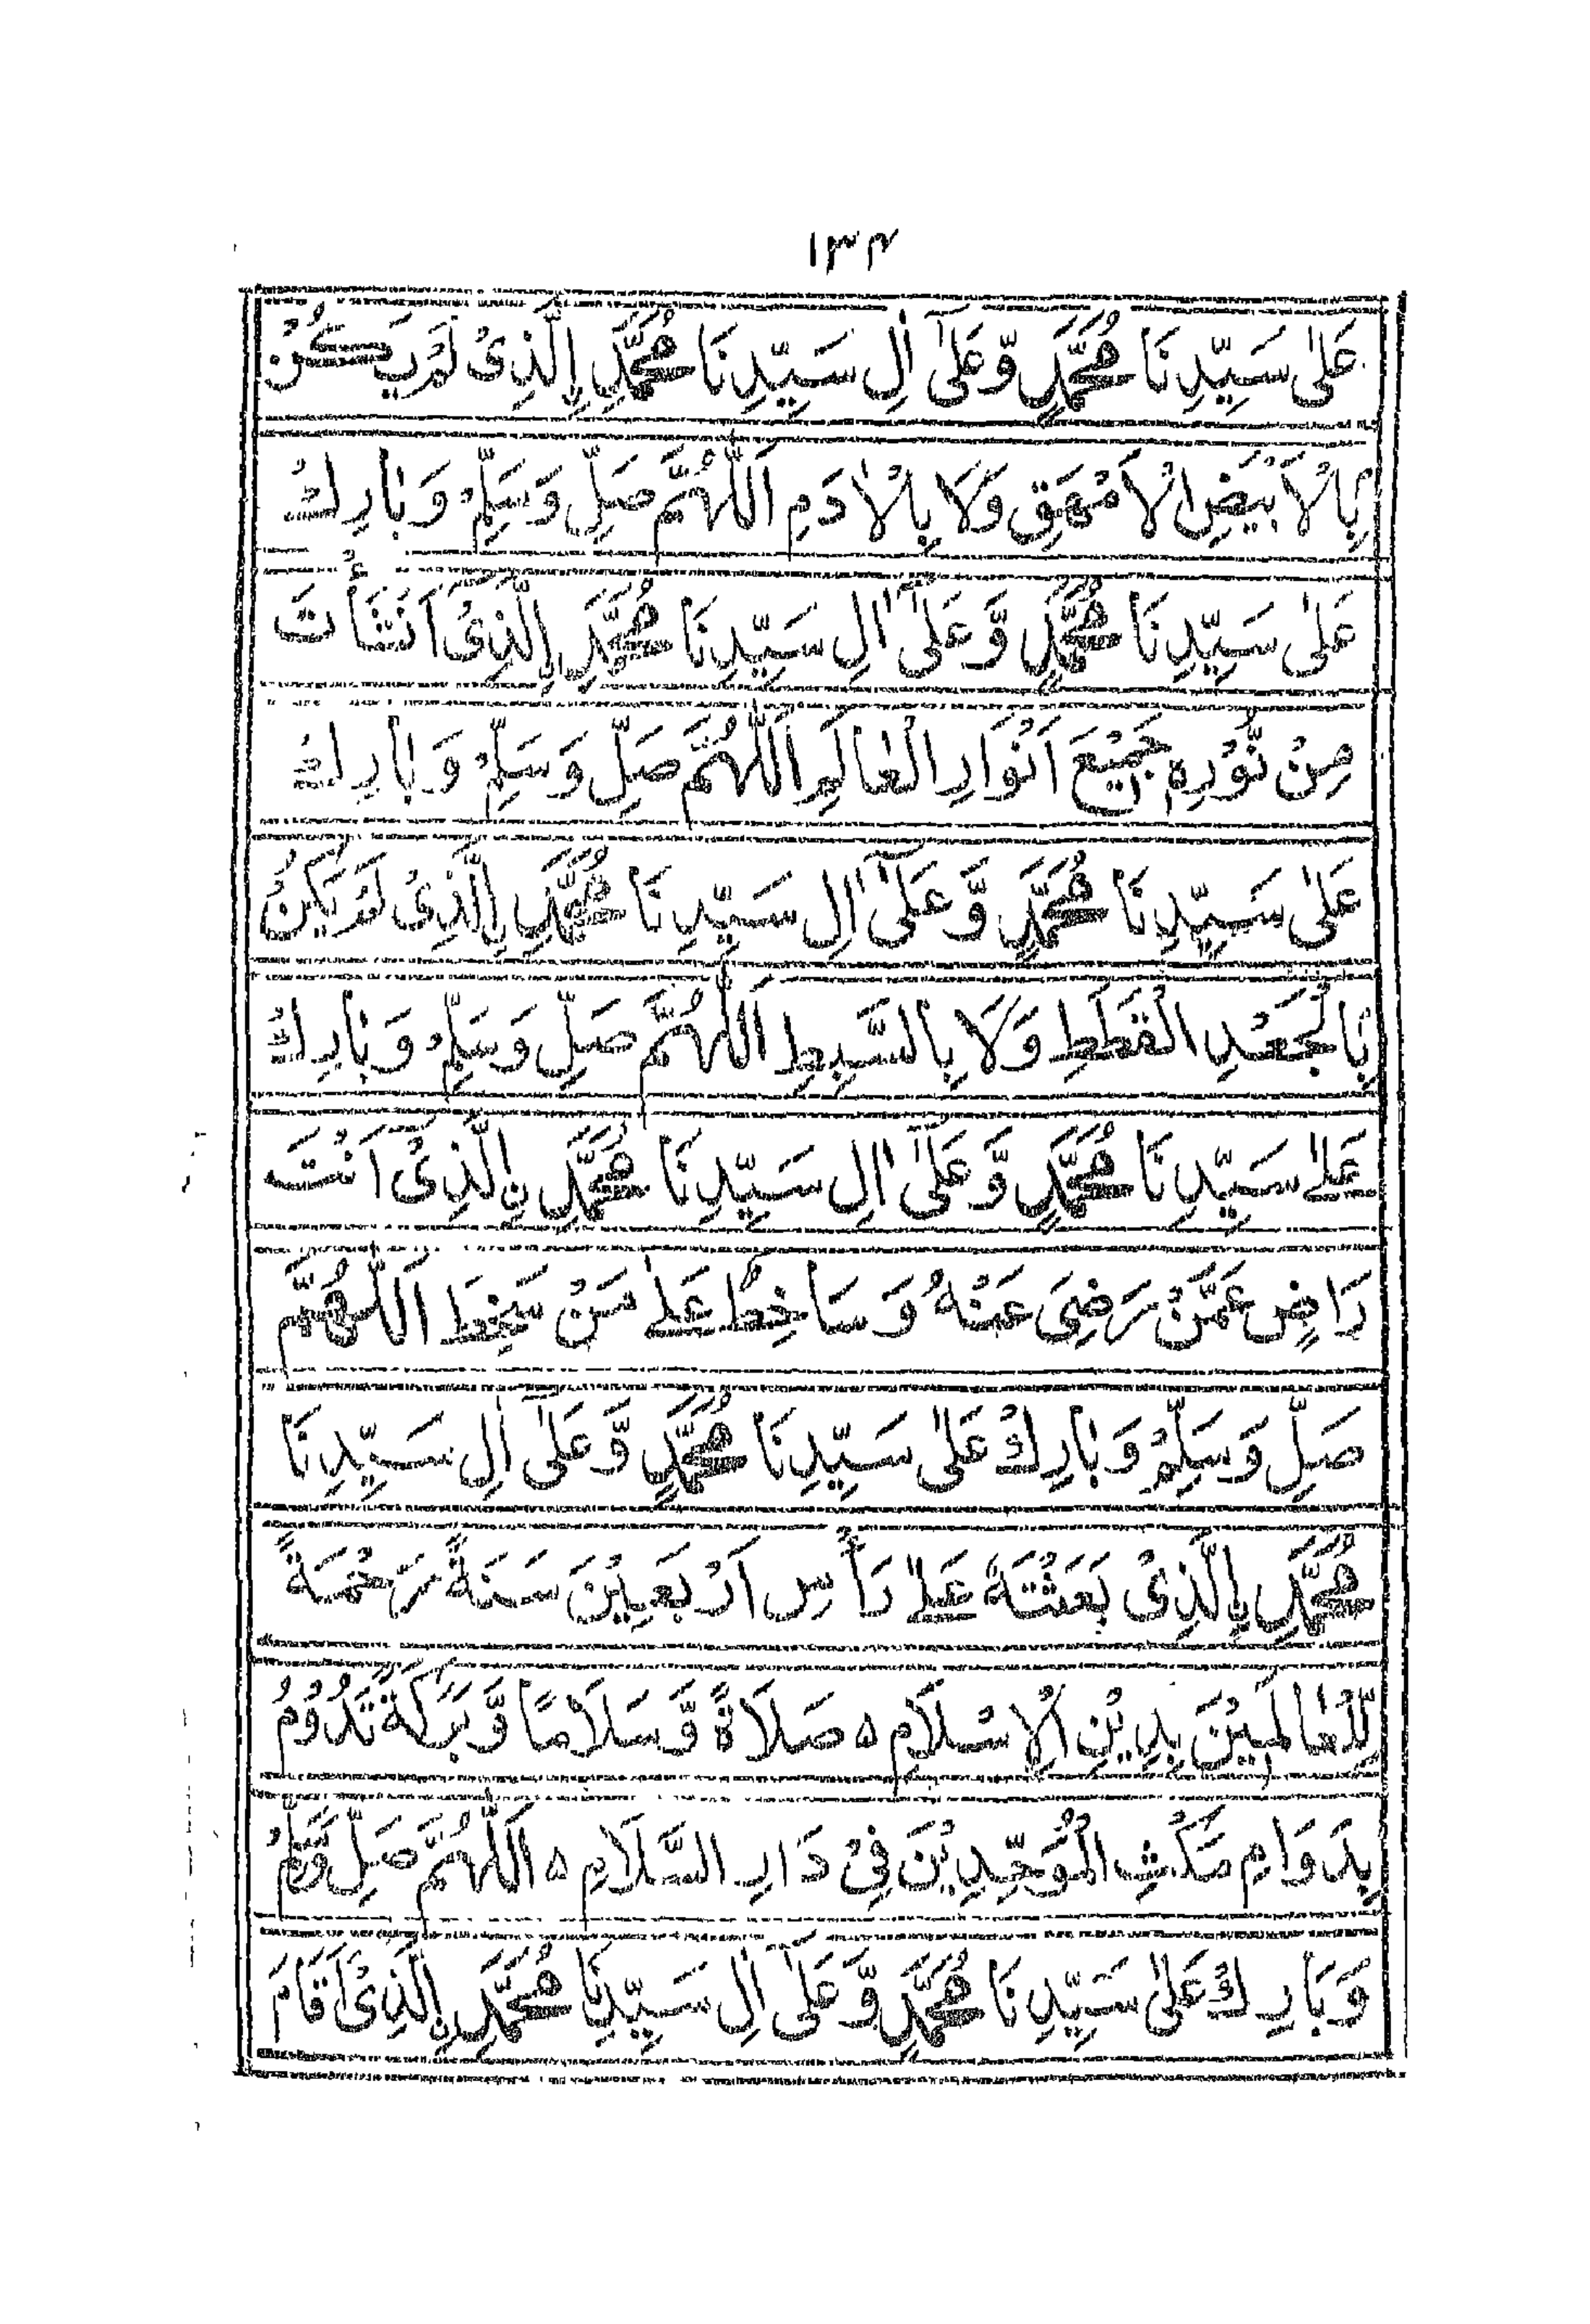 ۱۳۴
عَلٰى سَيِّدِنَا مُحَمَّدٍ وَّعَلٰىٓ اٰلِ سَيِّدِنَا مُحَمَّدِ ۣالَّذِىْ لَمْ يَكُنْ
بِالْاَبْيَضِ الْاَمْهَقِ وَلَا بِالْاٰدَمِ اَللّٰهُمَّ صَلِّ وَسَلِّمْ وَبَارِكْ
عَلٰى سَيِّدِنَا مُحَمَّدٍ وَّعَلٰىٓ اٰلِ سَيِّدِنَا مُحَمَّدِ ۣالَّذِىْٓ اَنْشَأْتَ
مِنْ نُّوْرِهٖ جَمِيْعَ اَنْوَارِ الْعَالَمِ اَللّٰهُمَّ صَلِّ وَسَلِّمْ وَبَارِكْ
عَلٰى سَيِّدِنَا مُحَمَّدٍ وَّعَلٰىٓ اٰلِ سَيِّدِنَا مُحَمَّدِ ۣالَّذِىْ لَمْ يَكُنْ
بِالْجَعْدِ الْقَطَطِ وَلَا بِالسَّبِطِ اَللّٰهُمَّ صَلِّ وَسَلِّمْ وَبَارِكْ
عَلٰى سَيِّدِنَا مُحَمَّدٍ وَّعَلٰىٓ اٰلِ سَيِّدِنَا مُحَمَّدِ نِ الَّذِىْٓ اَنْتَ
رَاضٍ عَمَّنْ رَضِىَ عَنْهُ وَسَاخِطٌ عَلٰى مَنْ سَخِطَ اَللّٰهُمَّ
صَلِّ وَسَلِّمْ وَبَارِكْ عَلٰى سَيِّدِنَا مُحَمَّدٍ وَّعَلٰىٓ اٰلِ سَيِّدِنَا
مُحَمَّدِ ۣالَّذِىْ بَعَثْتَهٗ عَلٰى رَأْسِ اَرْبَعِيْنَ سَنَةً رَحْمَةً
لِّلْعَالَمِيْنَ بِدِيْنِ الْاِسْلَامِ ہ صَلَاةً وَّسَلَامًا وَّبَرَكَةً تَدُوْمُ
بِدَوَامِ مَكْثِ الْمُوَحِّدِيْنَ فِىْ دَارِ السَّلَامِ ہ اَللّٰهُمَّ صَلِّ وَسَلِّمْ
وَبَارِكْ عَلٰى سَيِّدِنَا مُحَمَّدٍ وَّعَلٰىٓ اٰلِ سَيِّدِنَا مُحَمَّدِ نِ الَّذِىْٓ اَقَامَ